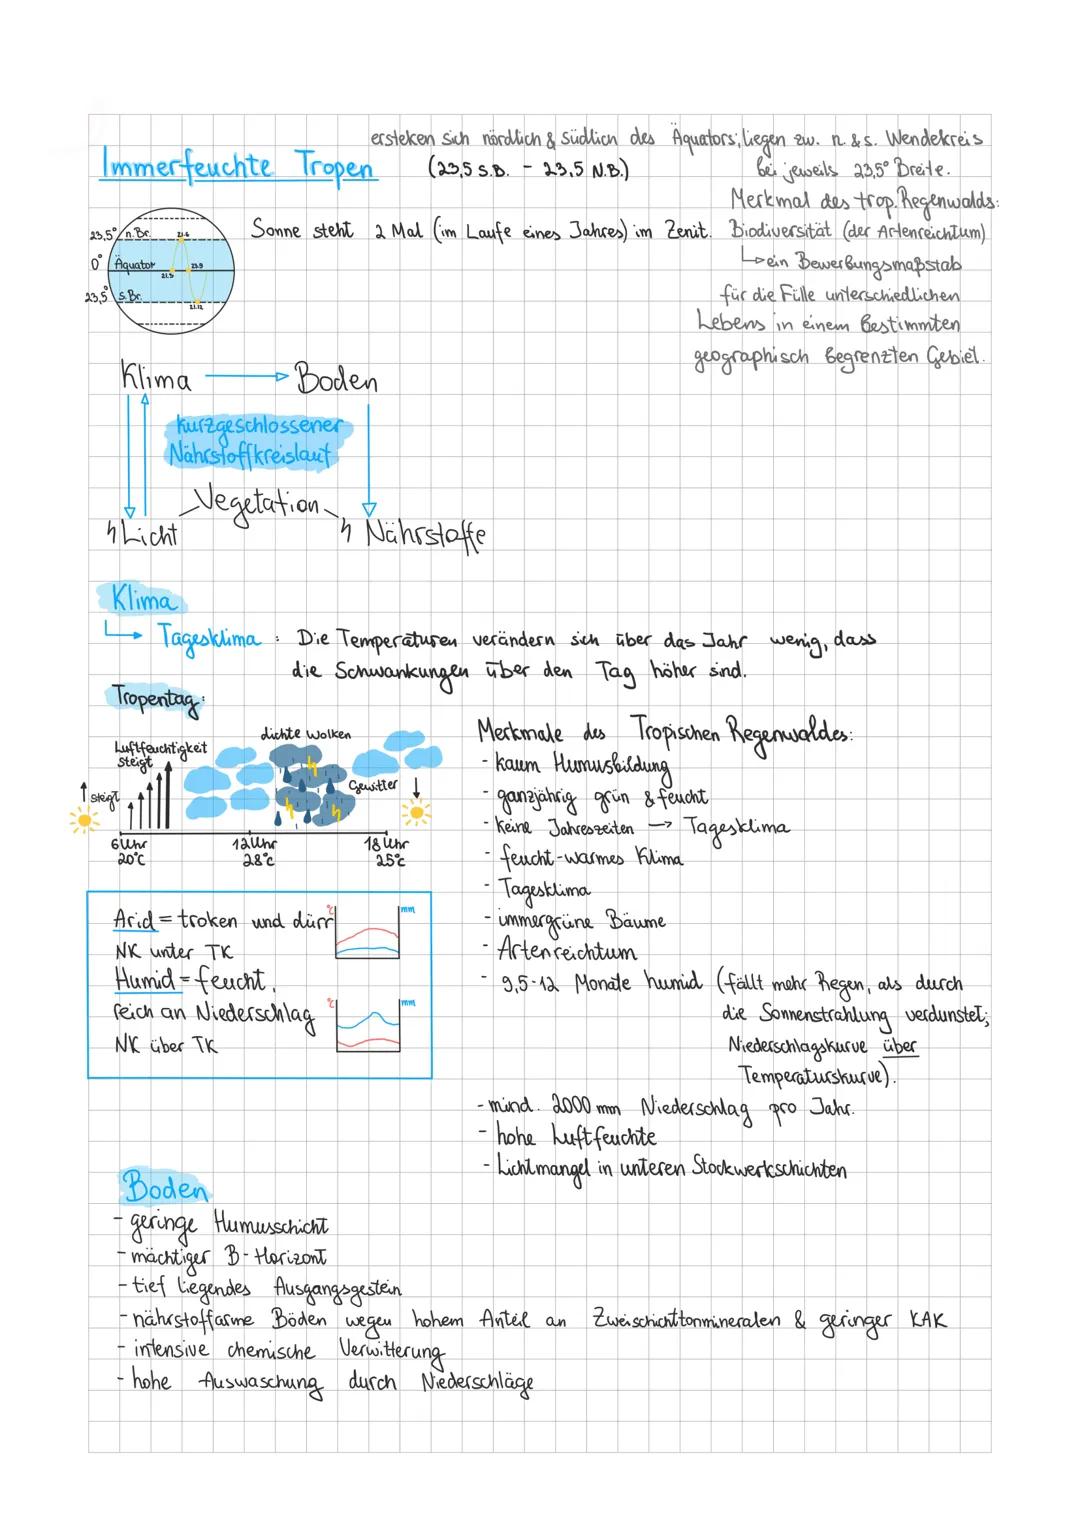 ersteken sich nördlich & südlich des Äquators; liegen zw. n. & s. Wendekreis
Immerfeuchte Tropen (23,5 s.B. - 23,5 N.B.) bei jeweils 23,5° Breite.
Merkmal des trop. Regenwalds:
Sonne steht 2 Mal (im Laufe eines Jahres) im Zenit. Biodiversität (der Artenreichtum)
ein Bewerbungsmaßstab
für die Fülle unterschiedlichen
Lebens in einem bestimmten
geographisch begrenzten Gebiet.
23,5° n. Br. 21.6
0° Äquator 21.3 23.9
23,5° s. Br. 21.12
Klima Boden
kurzgeschlossener
Nährstoffkreislauf
Vegetation
Licht Nährstoffe
Klima
Tagesklima : Die Temperaturen verändern sich über das Jahr wenig, dass
die Schwankungen über den Tag höher sind.
Tropentag:
Luftfeuchtigkeit
steigt
dichte Wolken
Gewitter
steigt
6 Uhr 12 Uhr 18 Uhr
20°C 28°C 25°C
Merkmale des Tropischen Regenwaldes:
- kaum Humusbildung
- ganzjährig grün & feucht
- keine Jahreszeiten → Tagesklima
- feucht-warmes Klima
- Tagesklima
- immergrüne Bäume
- Artenreichtum
- 9,5-12 Monate humid (fällt mehr Regen, als durch
die Sonnenstrahlung verdunstet;
Niederschlagskurve über
Temperaturskurve).
- mind. 2000 mm Niederschlag pro Jahr.
- hohe Luftfeuchte
- Lichtmangel in unteren Stockwerkschichten
Arid = troken und dürr °C mm
NK unter TK
Humid = feucht,
reich an Niederschlag °C mm
NK über TK
Boden
- geringe Humusschicht
- mächtiger B-Horizont
- tief liegendes Ausgangsgestein
- nährstoffarme Böden wegen hohem Anteil an Zweischichttonmineralen & geringer KAK
- intensive chemische Verwitterung
- hohe Auswaschung durch Niederschläge